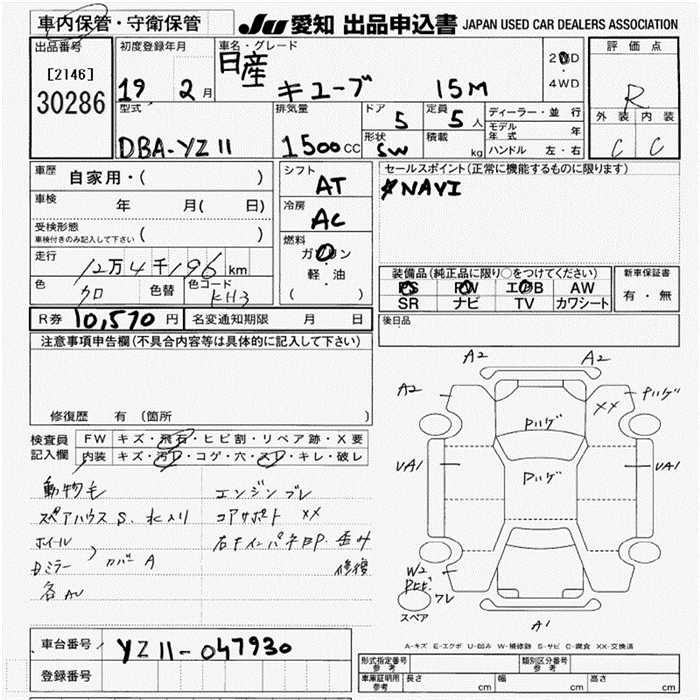 車内保管・守衛保管 JU 愛知 出品申込書 JAPAN USED CAR DEALERS ASSOCIATION
出品番号 [2146] 30286
初度登録年月 19 2 月
車名・グレード 日産 キューブ 15M
2WD ・ 4WD
評価点 R
外装 内装 C C
型式 DBA-YZ11
排気量 1500 CC
ドア 5 定員 5 人
形状 SW 積載 kg
ディーラー・並行
モデル年式 年
ハンドル 左・右
車歴 自家用・( )
車検 年 月( 日)
受検形態 車検付きのみ記入して下さい ( )
走行 12万4千196 km
色 クロ 色替 色コード KH3
シフト AT
冷房 AC
燃料 ガソリン ・ 軽油 ( )
セールスポイント(正常に機能するものに限ります)
NAVI
装備品(純正品に限り○をつけてください)
PS PW エアB AW
SR ナビ TV カワシート
新車保証書 有・無
R券 10,570 円 名変通知期限 月 日
後日品
注意事項申告欄(不具合内容等は具体的に記入して下さい)
修復歴 有(箇所 )
検査員記入欄
FW キズ・飛石・ヒビ割・リペア跡・X要
内装 キズ・汚れ・コゲ・穴・スレ・キレ・破レ
動物毛 エンジンブレ
スペアハウス S. 水入り コアサポート XX
ホイール
ドミラー カバー A
修復
A2 A2
A2 XX
UA1 UA1
W2
スペア
A1
A-キズ E-エクボ U-凹み W-補修跡 S-サビ C-腐食 XX-交換済
車台番号 YZ11-047930
登録番号
形式指定番号 参考 類別区分番号 参考
車庫証明用 参考 長さ cm 幅 cm 高さ cm